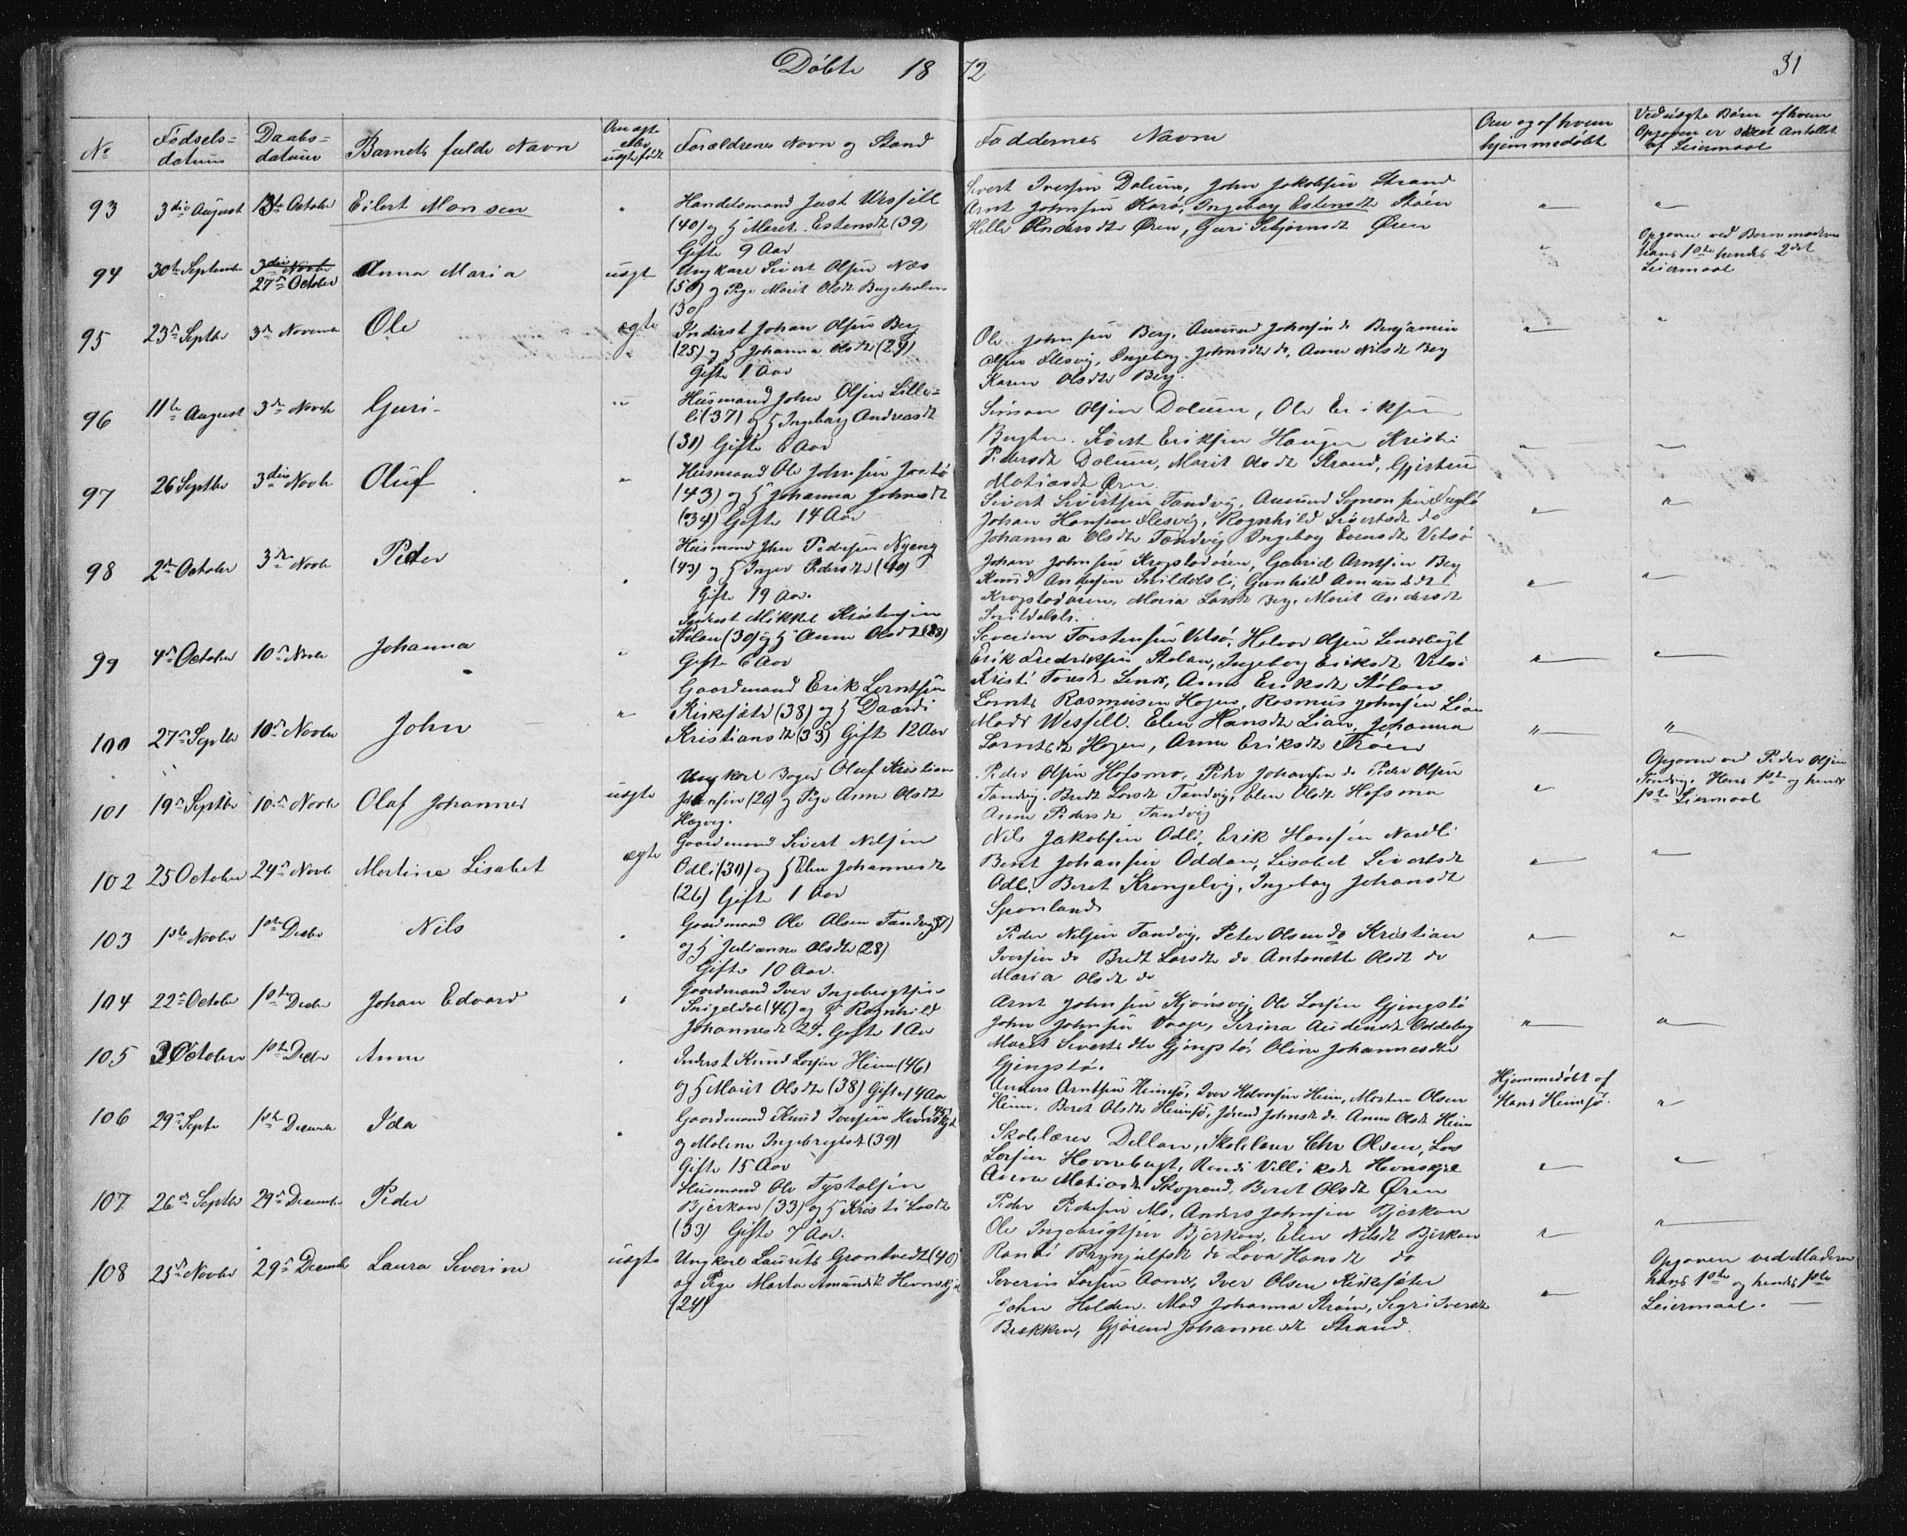 Döbte 18 72
31
No
Fødsels-
datum
Daabs-
datum
Barnets fulde Navn
Om ægte
eller
uægte født
Forældrenes Navn og Stand
Faddernes Navne
Om og af hvem
hjemmedøbt
Ved uægte Børn af hvem
Opgaven er skeet Antallet
af Leiermaal
93 3die August 13de October Eilert Monsen "
Handelsmand Just Wesfell
(40) og H Meret Estensdt (39)
Gifte 9 Aar
Sivert Iversen Dolum, John Jakobsen Strand
Arnt Johnsen Korsø, Ingebor Estensdt Støen
Andersdt Øren, Guri Øren
94 30te September 3die Novbr
27de October Anna Maria uægt
Ungkarl Sivert Olsen Næs
(50) og Pige Marit Olsdt
(30)
Opgaven ved Barnemoderen
hans 1ste hendes 2det
Leiermaal
95 23de Septbr 3de Novembr Ole ægte
Inderst Johan Olsen Berg
(25) og H Johanna Olsdtr (29)
Gifte 1 Aar
Ole Johnsen Berg, Amund Johnsen do Benjamin
Olsen Slesvig, Ingebor Johnsdt do, Anne Nilsdt Berg
Karen Olsdtr Berg.
96 11te August 3de Novbr Guri
Husmand John Olsen Lille-
li (37) og H Ingebor Andreasdt
(31) Gifte 6 Aar
Simon Olsen Dolum, Ole Eriksen
Sivert Eriksen Haugen Kristi
Pedersdt Dolum, Marit Olsdt Strand, Gjertru
Matiasdt Øren.
97 26 Septbr 3die Novbr Oluf "
Husmand Ole Johnsen
(43) og H Johanna Johnsdt
(34) Gifte 14 Aar
Sivert Sivertsen Tandvig, Amund Semonsen
Johan Hansen Slesvig, Ragnhild Sivertsdt do
Johanna Olsdt Tandvig Ingebor Evensdt Vitsø
98 2de October 3de Novbr Peder "
Husmand John Pedersen Nyeng
(43) og H Inger Pedersdt (40)
Gifte 19 Aar.
Johan Johnsen Krogstadøren, Gabriel Arntsen Berg
Knud Snildalsli, Gunhild Amundsdt
Krogstadøren, Maria Larsdt Berg, Marit Andersdt
Snildalsli.
99 4de October 10de Novbr Johanna "
Inderst Mikkel Kristensen
Stølan (30) og H Anne Olsdt (28)
Gifte 6 Aar
Severin Torstensen Vitsø, Halvor Olsen
Erik Fredriksen Stølan, Ingebor Eriksdt Vitsø
Kristi Toresdt Anne Eriksdt Stølan
100 27de Septbr 10de Novbr John "
Gaardmand Erik Lorntsen
Kirksæter (38) og H Daardi
Kristiansdt (33) Gift 12 Aar
Lornts Rasmusen Hogen, Rasmus Johnsen Lian
Madr Wesfell. Elen Hansdt Lian, Johanna
Lorntsdt Hogen, Anne Eriksdt Støen
101 19de Septbr 10de Novbr Olaf Johannes uægte
Ungkarl Bager Oluf Kristian
Johansen (26) og Pige Anne Olsdt
Hagvig.
Peder Olsen Hofsmo, Peder Johansen do Peder Olsen
Tandvig. Berit Larsdt Tandvig, Elen Olsdt Hofsmo
Anne Pedersdt Tandvig
Opgaven ved Peder Olsen
Tandvig. Hans 1ste og hendes
1ste Leiermaal
102 25 October 24de Novbr Martina Lisabet ægte
Gaardmand Sivert Nilsen
Odli (30) og H Elen Johannesdt
(26) Gifte 1 Aar
Nils Jakobsen Odli, Erik Hansen Nordli
Bent Johansen Oddan, Lisabet Sivertsdt
Odli. Beret Krongelvig, Ingebor Johansdt
Sponland
103 1ste Novbr 1ste Decbr Nils "
Gaardmand Ole Olsen Tandvig (37)
og H Julianna Olsdtr (28)
Gifte 10 Aar.
Peder Nilsen Tandvig, Peter Olsen do Kristian
Iversen do Berit Larsdtr do Antonette Olsdt do
Maria Olsdt do
104 22de October 1ste Decbr Johan Edvard "
Gaardmand Iver Ingebrigtsen
Snigeldal (46) og H Ragnhild
Johannesdt 24. Gifte 1 Aar
Arnt Johnsen Kjønsvig, Ole Larsen Gjengstø
John Johnsen Vaage, Serina Audensdt Oddeberg
Marit Sivertsdtr Gjengstø, Oline Johannesdtr
Gjengstø.
105 3 October 1ste Decbr Anne "
Inderst Knud Larsen Heim (46)
og H Marit Olsdtr (38) Gifte 14 Aar
Anders Arntsen Heimsjø, Iver Halvorsen Heim, Morten Olsen
Heim. Beret Olsdtr Heimsjø, Jørend Johnsdt do. Anne Olsdt Heim
Hjemmedøbt af
Hans Heimsjø.
106 29de Septe 1ste Decembr Ida "
Gaardmand Knud Iversen Hevnskjel (45)
og Malene Ingebrigtsdt (39)
Gifte 15 Aar
Skolelærer Dellan, Skolelærer Chr Olsen, Lars
Larsen Havnebugt, Randi Villiksdt Hevnskjel
Anne Matiasdt Skogrand, Beret Olsdt Øren
107 26de Septbr 29de Decembr Peder
Husmand Ole Tystolsen
Bjerkan (33) og H Kristi Larsdt
(33) Gifte 7 Aar.
Peder Pedersen Mo, Anders Johnsen Bjerkan
Ole Ingebrigtsen Bjerkan, Elen Nilsdt Bjerkan
Randi Brynjulfsdt do Lava Hansdt do
108 25de Novbr 29de Decembr Laura Severine uægte
Ungkarl Laurits Grøntvedt (40)
og Pige Marta Amundsdt Hevnskjel
(24)
Severin Larsen Aune, Iver Olsen Kirksæter
John Holden. Mad Johanna Strøm, Segri Iversdt
Brækken, Gjørend Johannesdt Strand.
Opgaven ved Moderen
hans 1ste og hendes 1ste
Leiermaal.